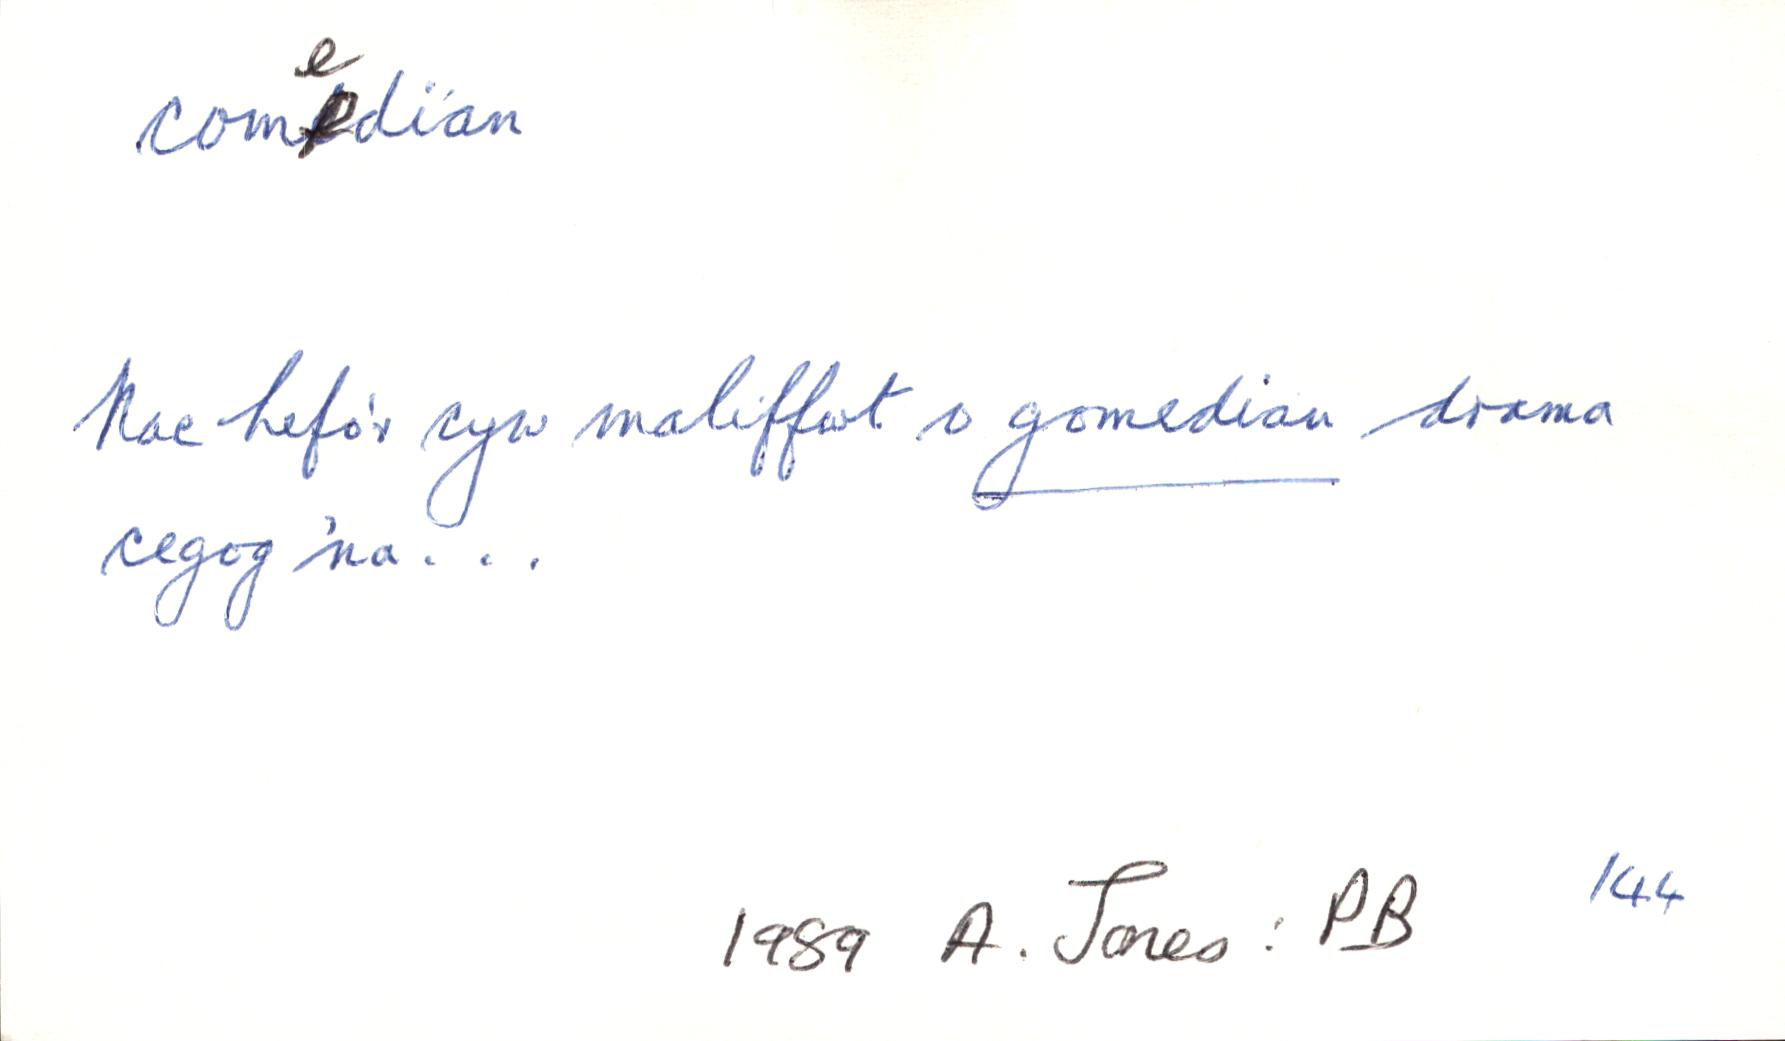 comedïan
Nac hefo'r cyw maliffwt o gomedian drama
cegog 'na . . .
1989 A. Jones : PB 144